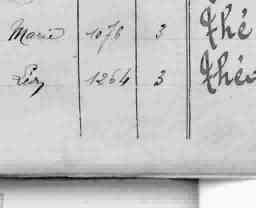 Marie 1076 3 Thé
Léz 1264 3 Théo